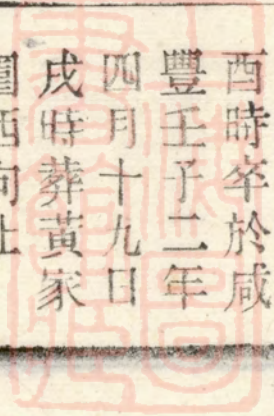 酉時卒於咸
豐壬子二年
四月十九日
戌時葬黃家
園酉向上